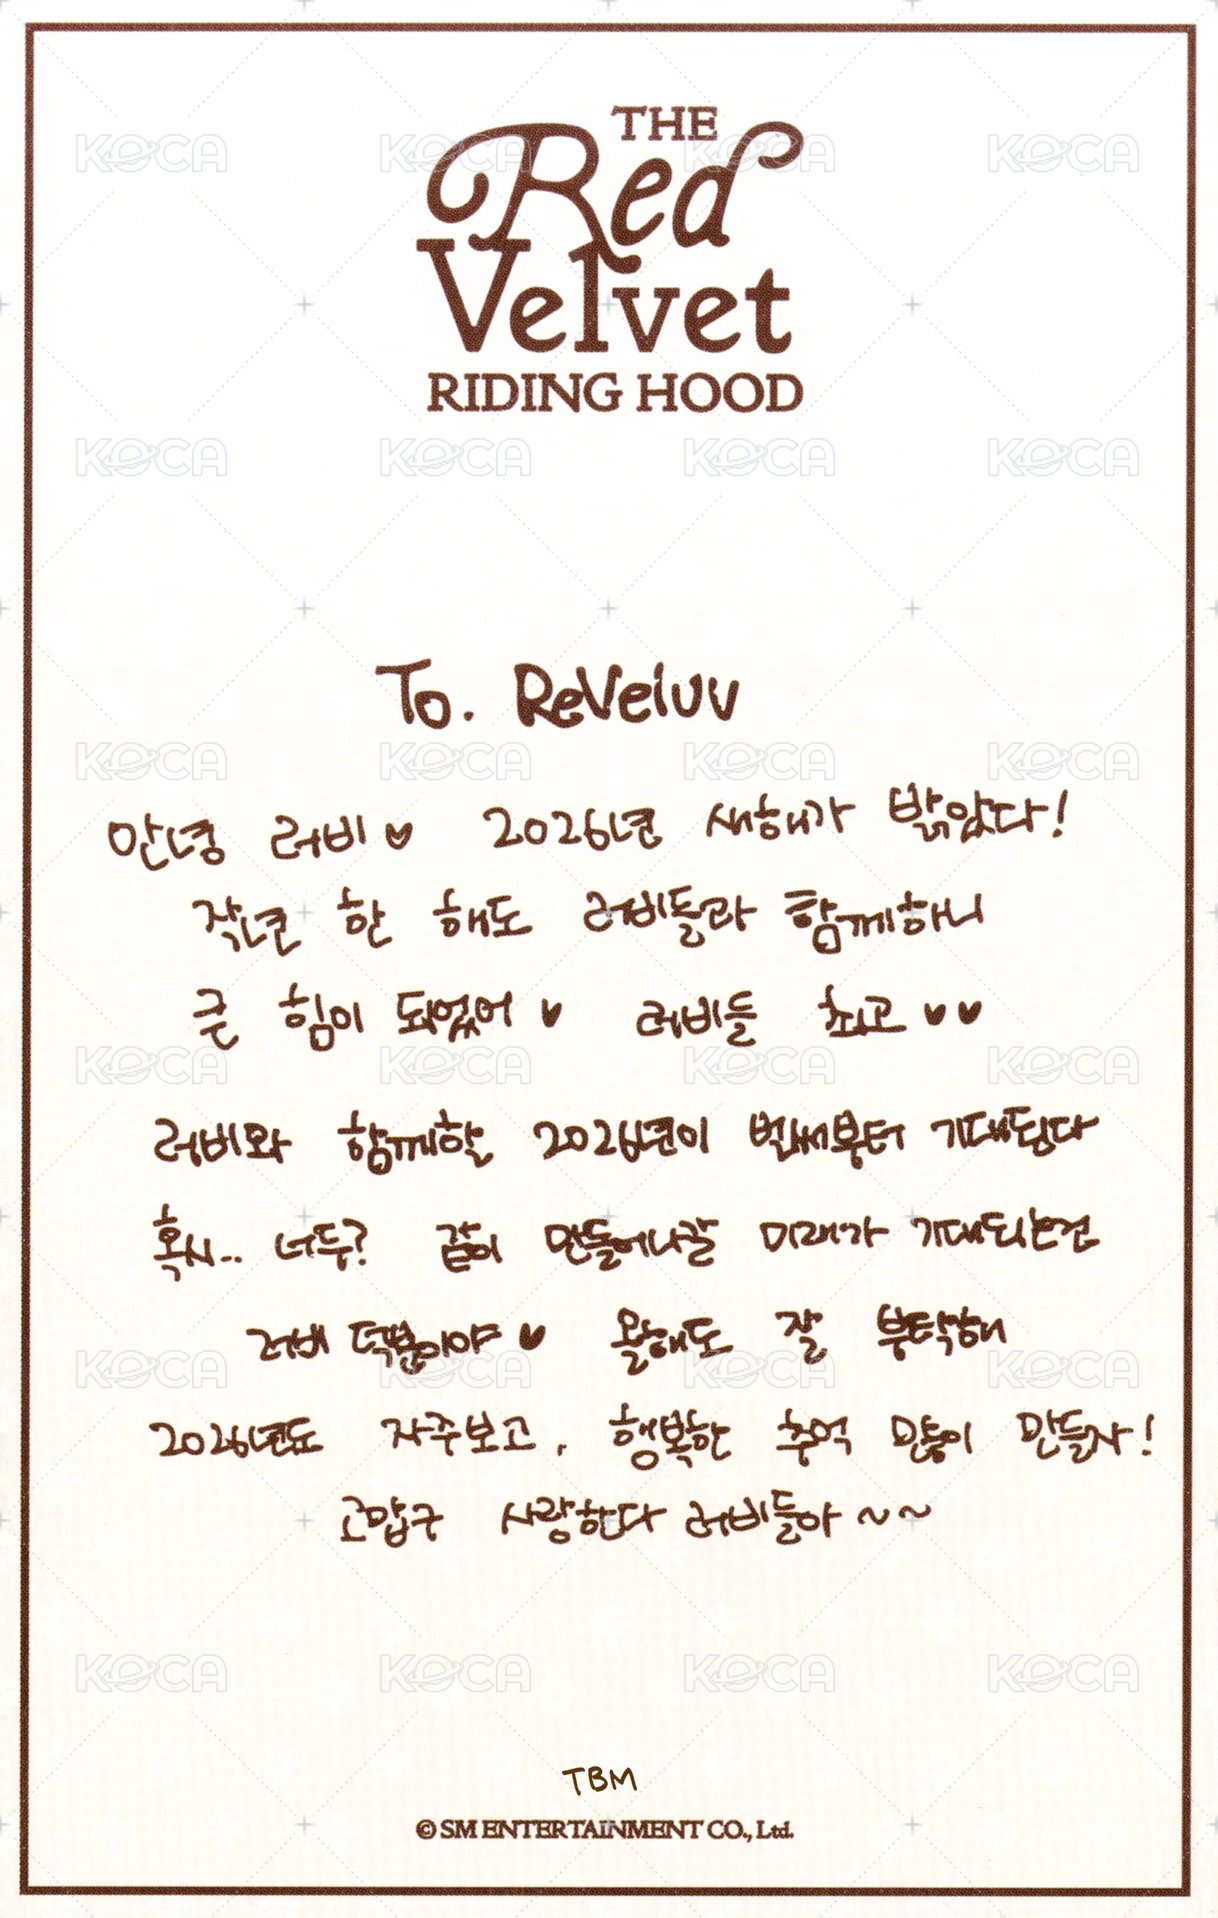 THE
Red
Velvet
RIDING HOOD
To. ReVeluv
안녕 러비♥ 2026년 새해가 밝았다!
작년 한 해도 러비들과 함께하니
큰 힘이 되었어 ♥ 러비들 최고 ♥♥
러비와 함께할 2026년이 벌써부터 기대된다
혹시.. 너두? 같이 만들어나갈 미래가 기대되는건
러비 덕분이야 ♥ 올해도 잘 부탁해
2026년도 자주보고, 행복한 추억 많이 만들자!
고맙구 사랑한다 러비들아~~
TBM
© SM ENTERTAINMENT CO., Ltd.
KOCA